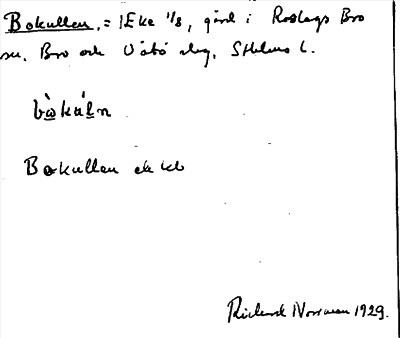 Bokullen, = 1 Eke 1/8, gård i Roslags Bro
sn, Bro och Vätö slg, Sthlms l.
bòkúl̲n
Bokullen ek kb
Richard Norrman 1929.